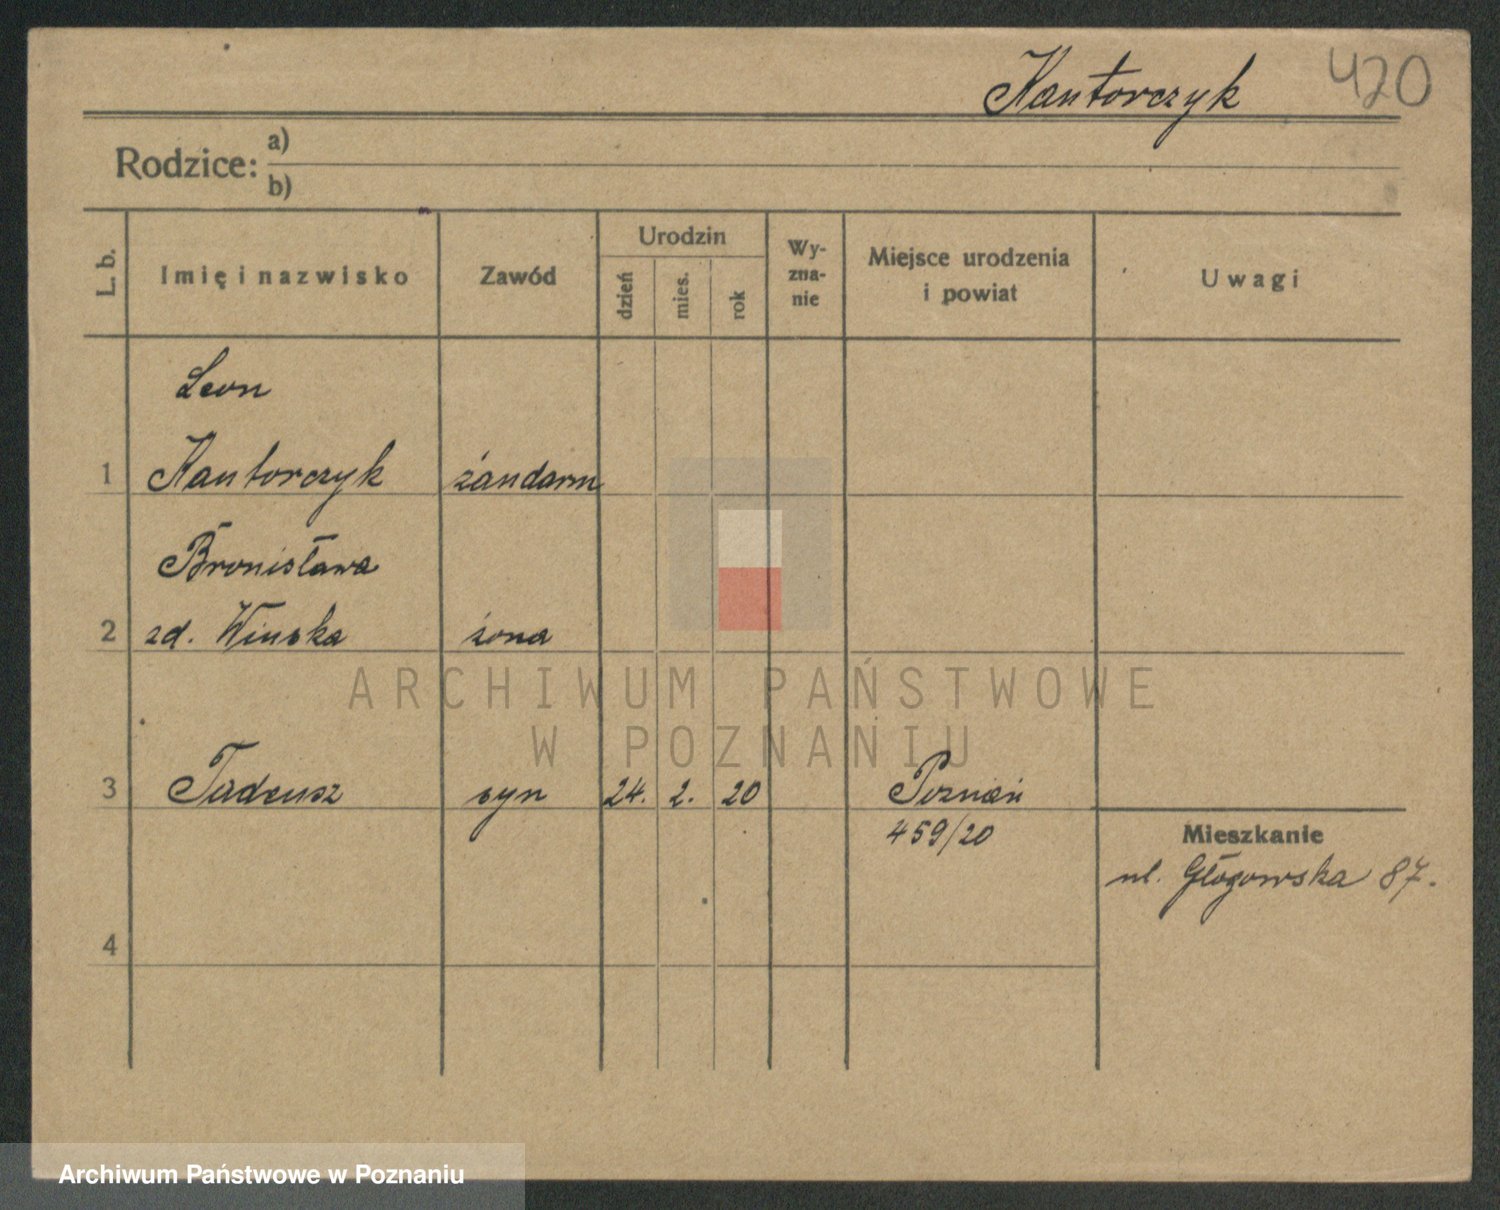 Kantorczyk 420
Rodzice: a)
b)
L. b.
Imię i nazwisko
Zawód
Urodzin
dzień
mies.
rok
Wy-
zna-
nie
Miejsce urodzenia
i powiat
Uwagi
Leon
1 Kantorczyk żandarm
Bronisława
2 zd. Winska żona
ARCHIWUM PAŃSTWOWE
W POZNANIU
3 Tadeusz syn 24. 2. 20 Poznań
459/20
Mieszkanie
ul. Głogowska 87.
4
Archiwum Państwowe w Poznaniu